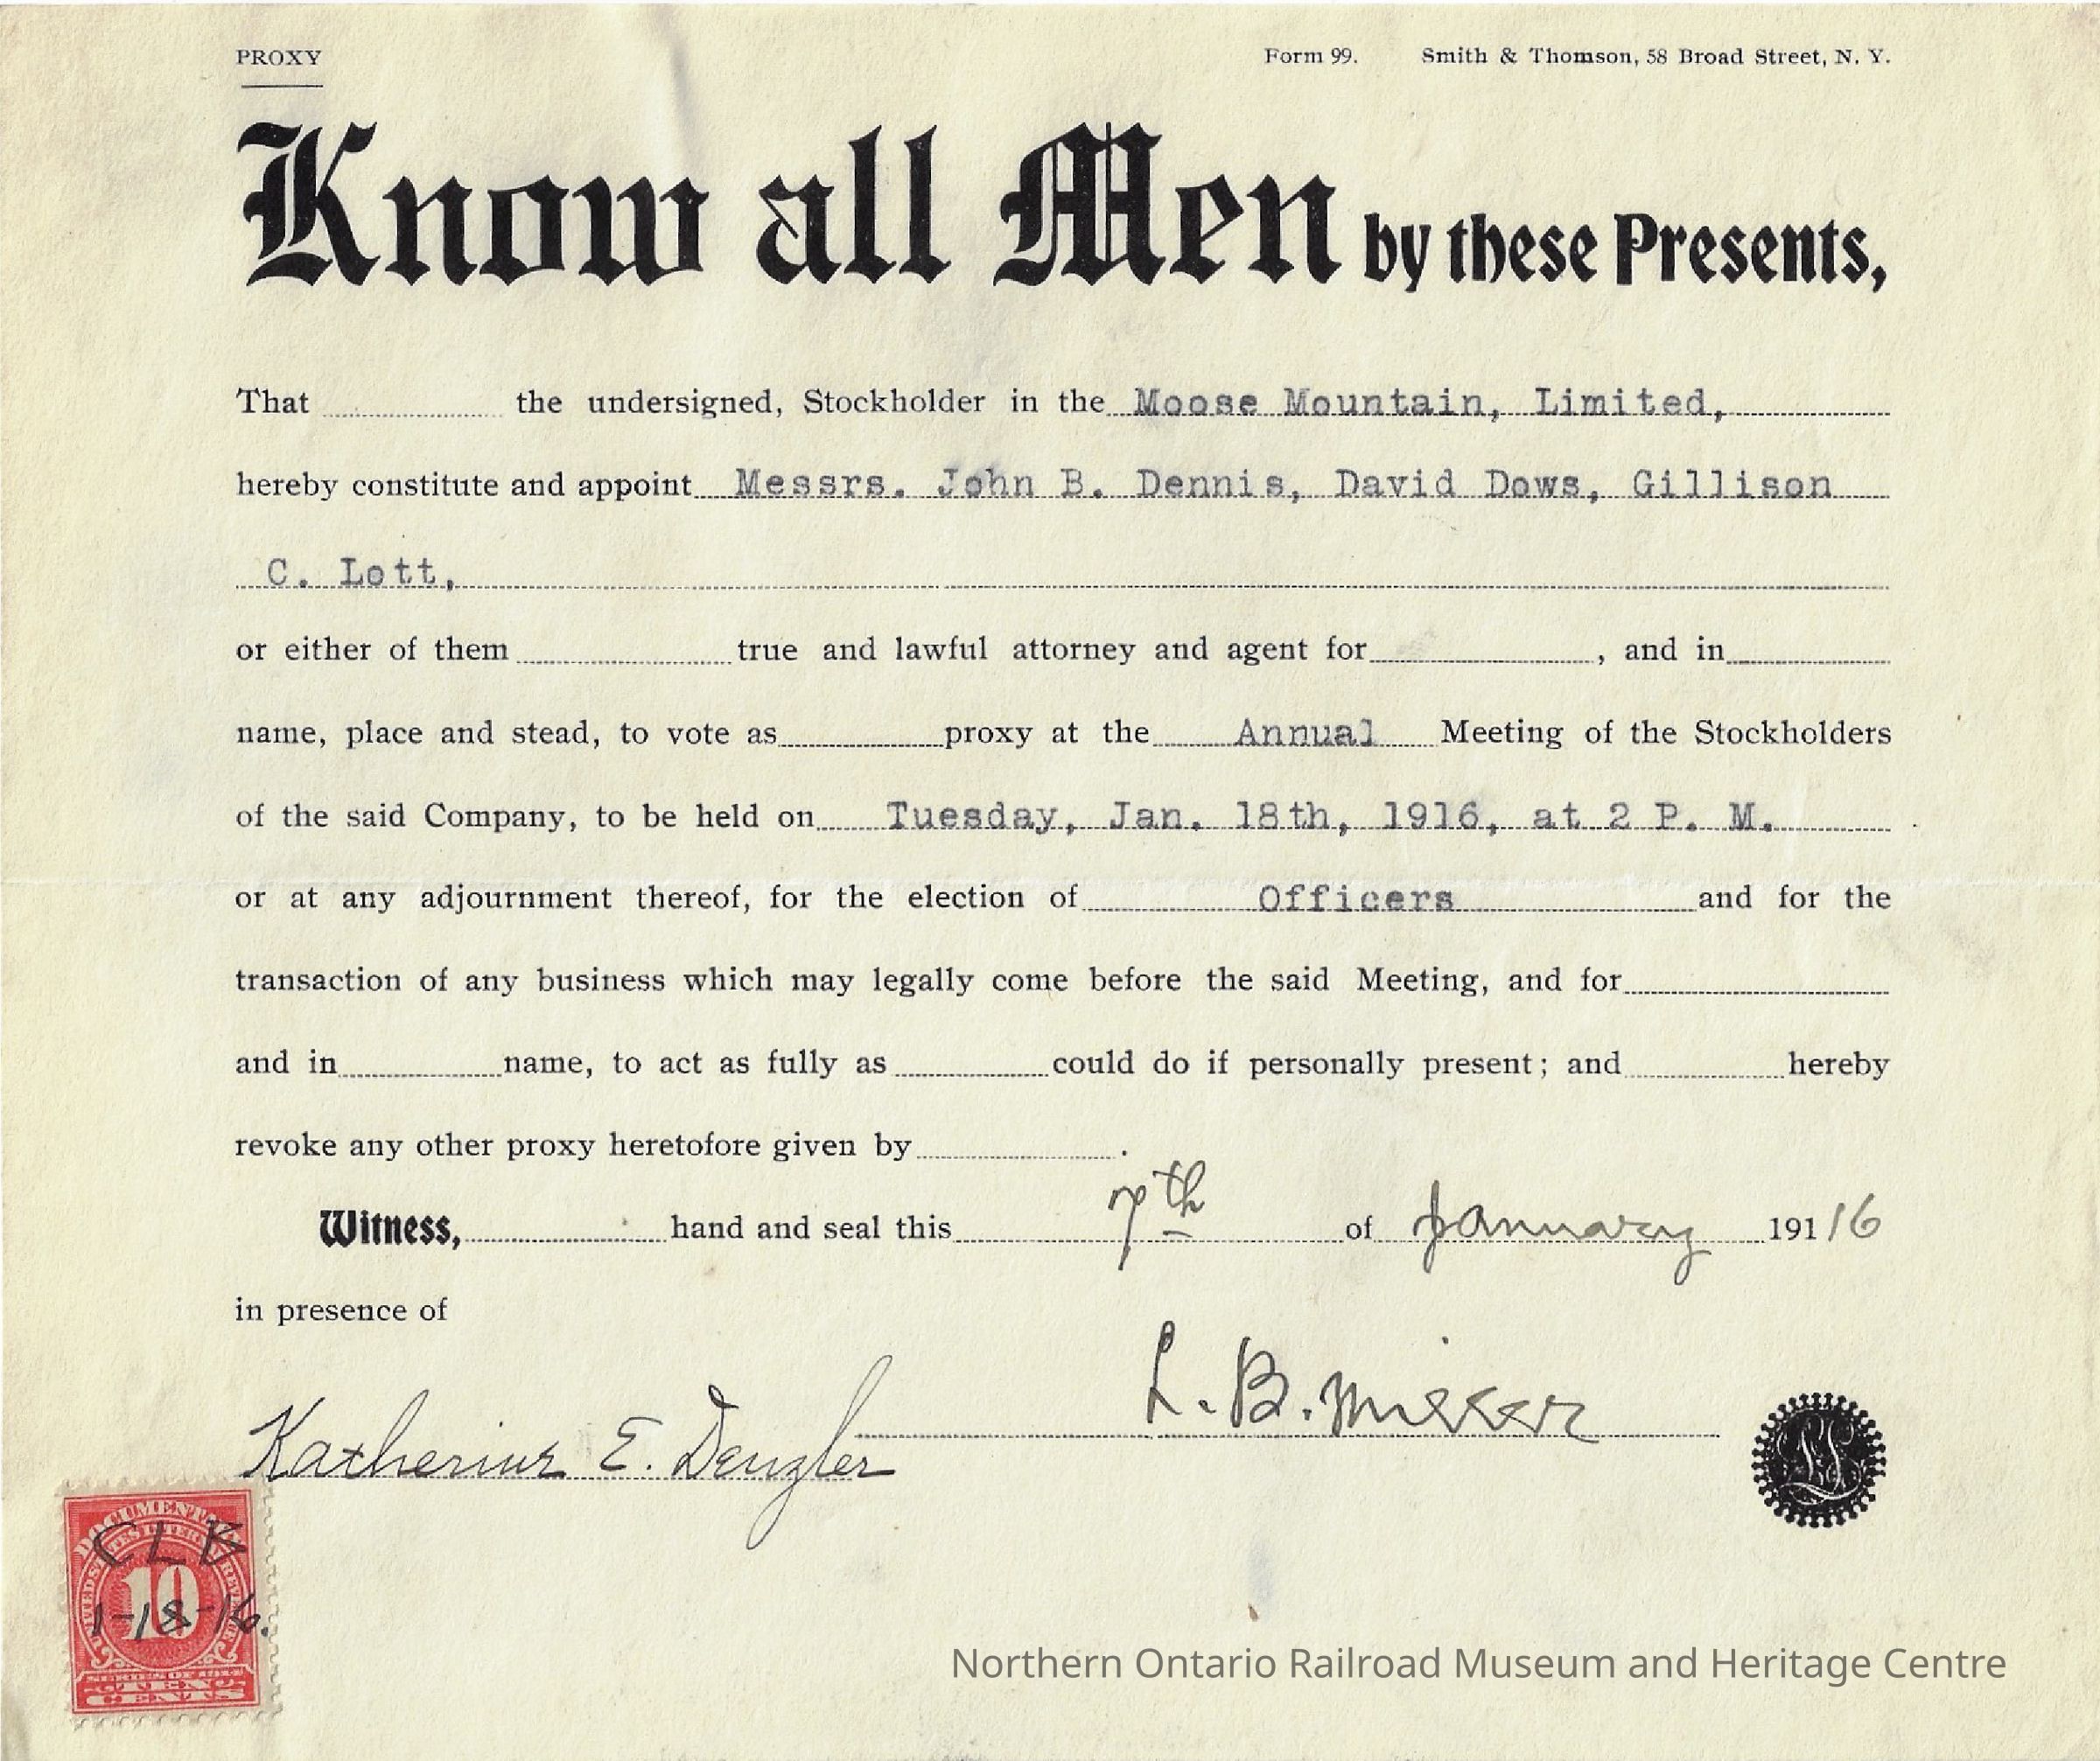 PROXY Form 99. Smith & Thomson, 58 Broad Street, N. Y.
Know all Men by these Presents,
That the undersigned, Stockholder in the Moose Mountain, Limited,
hereby constitute and appoint Messrs. John B. Dennis, David Dows, Gillison
C. Lott,
or either of them true and lawful attorney and agent for , and in
name, place and stead, to vote as proxy at the Annual Meeting of the Stockholders
of the said Company, to be held on Tuesday, Jan. 18th, 1916, at 2 P. M.
or at any adjournment thereof, for the election of Officers and for the
transaction of any business which may legally come before the said Meeting, and for
and in name, to act as fully as could do if personally present; and hereby
revoke any other proxy heretofore given by .
Witness, hand and seal this 7th of January 191 16
in presence of
L. B. Miller
Katherine E. Denzler
LS
DOCUMENTARY
UNITED STATES INTERNAL REVENUE
CLB
10
1-18-16.
SERIES OF 1914
TEN
CENTS
Northern Ontario Railroad Museum and Heritage Centre